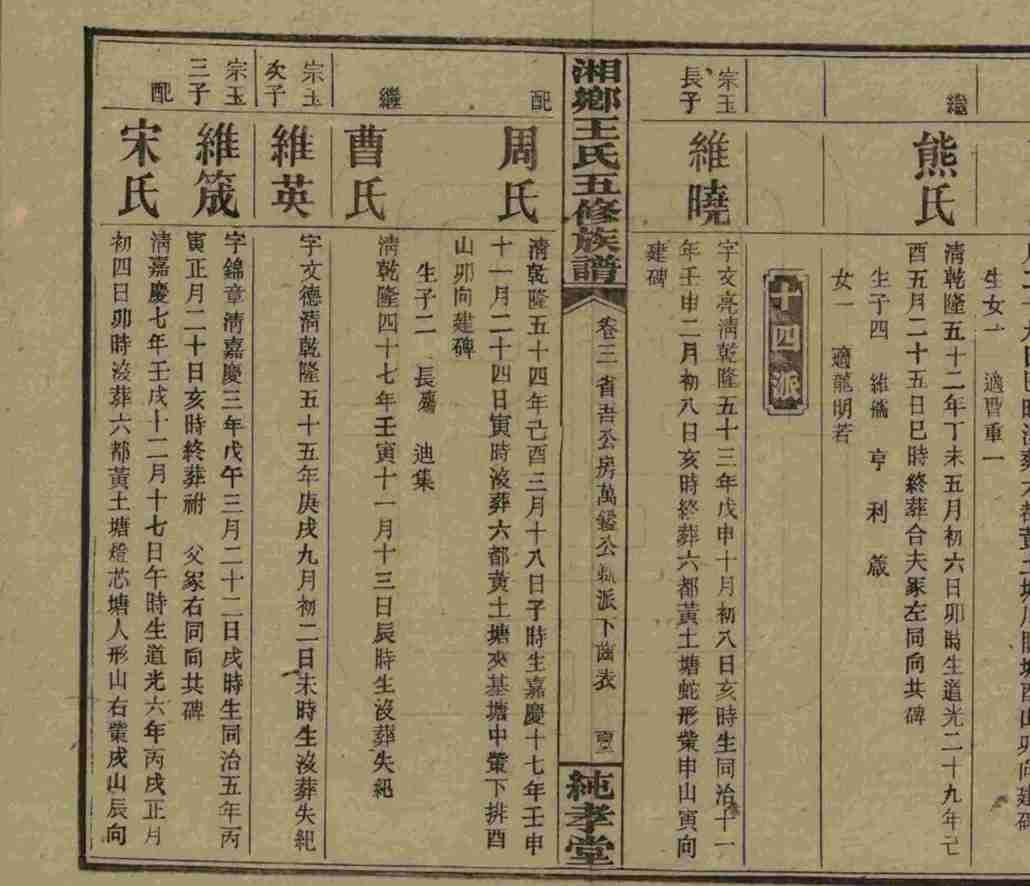 生女一　適
重一
繼
熊氏
清乾隆五十二年丁未五月初六日卯時生道光二十九年己
酉五月二十五日巳時終葬合夫冢左同向共碑
生子四　維　亨　利　葳
女一　適龍明若
十四派
宗玉
長子
維曉
字文亮清乾隆五十三年戊申十月初八日亥時生同治十一
年壬申二月初八日亥時終葬六都黃土塘蛇形塋申山寅向
建碑
湘鄉王氏五修族譜
卷三省吾公房萬鎰公　派下齒表
純孝堂
配
周氏
清乾隆五十四年己酉三月十八日子時生嘉慶十七年壬申
十一月二十四日寅時沒葬六都黃土塘夾基塘中塋下排酉
山卯向建碑
生子二　長　迪集
繼
曹氏
清乾隆四十七年壬寅十一月十三日辰時生沒葬失紀
宗玉
次子
維英
字文德清乾隆五十五年庚戌九月初二日未時生沒葬失紀
宗玉
三子
維箴
字錦章清嘉慶三年戊午三月二十二日戌時生同治五年丙
寅正月二十日亥時終葬祔　父冢右同向共碑
配
宋氏
清嘉慶七年壬戌十二月十七日午時生道光六年丙戌正月
初四日卯時沒葬六都黃土塘燈芯塘人形山右塋戌山辰向